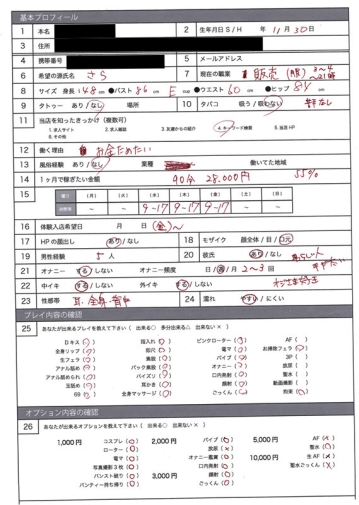 基本プロフィール
1 本名
2 生年月日 S / H 年 11 月 30 日
3 住所
4 携帯番号
5 メールアドレス
6 希望の源氏名 さら
7 現在の職業 販売(服)
8 サイズ 身長 148 cm ●バスト 86 cm E cup ●ウエスト 60 cm ●ヒップ 84 cm
9 タトゥー あり/なし 場所
10 タバコ 吸う/吸わない
11 当店を知ったきっかけ(複数可)
1. 求人サイト 2. 求人雑誌 3. 友達からの紹介 4. キーワード検索 5. 当店HP
6. その他
12 働く理由 お金ためたい
13 風俗経験 あり/なし 業種 働いてた地域
14 1ヶ月で稼ぎたい金額 90分 28.000円 55%
15 曜日 (月) (火) (水) (木) (金) (土) (日)
- - 9-17 9-17 9-17 - -
16 体験入店希望日 月 日 (金)~
17 HPの顔出し あり/なし
18 モザイク 顔全体/目/口元
19 男性経験 5 人
20 彼氏 あり/なし
21 オナニー する/しない オナニー頻度 日/週/月 2~3 回
22 中イキ する/しない 外イキ する/しない
23 性感帯 耳.全身.背中
24 濡れ やすい/にくい
プレイ内容の確認
25 あなたが出来るプレイを教えて下さい( 出来る○ 多分出来る△ 出来ない× )
Dキス 指入れ ピンクローター AF
全身リップ 指尺 電マ お掃除フェラ
生フェラ 素股 バイブ 3P
アナル舐め バック素股 オナニー 放尿
アナル舐められ パイズリ 口内発射 聖水
玉舐め 耳かき 顔射 動画撮影
69 全身マッサージ ごっくん 拘束
オプション内容の確認
26 あなたが出来るオプションを教えて下さい( 出来る○ 出来ない× )
1,000円 コスプレ(○) 2,000円 バイブ(○) 5,000円 AF(×)
ローター(○) 放尿(×) 聖水(×)
電マ(○) オナニー鑑賞(○) 10,000円 生AF(×)
写真撮影3枚(○) 口内発射(○) 聖水ごっくん(×)
パンスト破り(○) 3,000円 顔射(○)
パンティー持ち帰り(○) ごっくん(○)